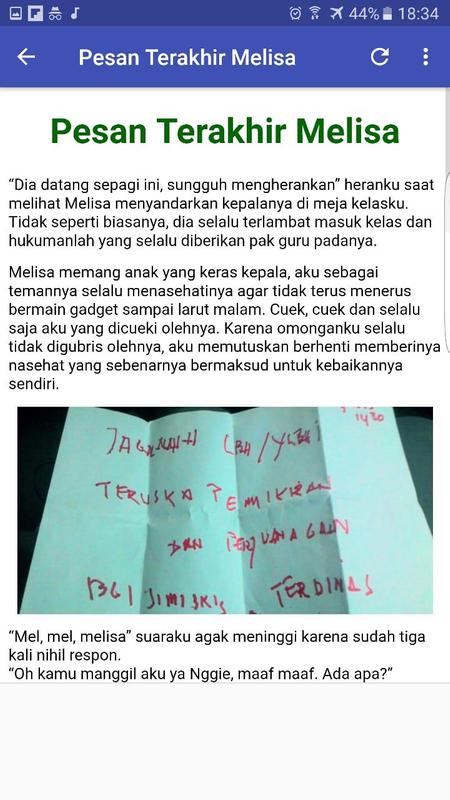 44% 18:34
Pesan Terakhir Melisa
Pesan Terakhir Melisa
“Dia datang sepagi ini, sungguh mengherankan” heranku saat
melihat Melisa menyandarkan kepalanya di meja kelasku.
Tidak seperti biasanya, dia selalu terlambat masuk kelas dan
hukumanlah yang selalu diberikan pak guru padanya.
Melisa memang anak yang keras kepala, aku sebagai
temannya selalu menasehatinya agar tidak terus menerus
bermain gadget sampai larut malam. Cuek, cuek dan selalu
saja aku yang dicueki olehnya. Karena omonganku selalu
tidak digubris olehnya, aku memutuskan berhenti memberinya
nasehat yang sebenarnya bermaksud untuk kebaikannya
sendiri.
1430
TERUSKA PEMIKIRAN
DAN
BGI TERDINAS
“Mel, mel, melisa” suaraku agak meninggi karena sudah tiga
kali nihil respon.
“Oh kamu manggil aku ya Nggie, maaf maaf. Ada apa?”